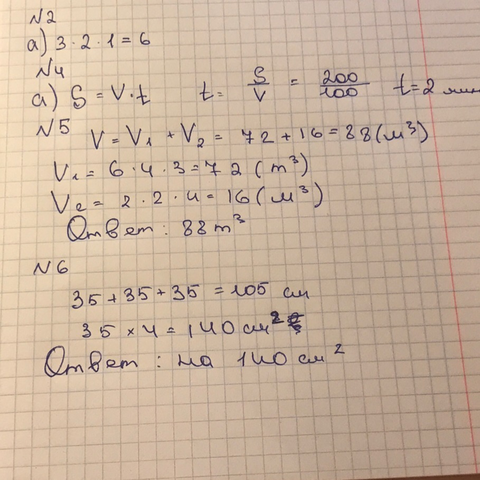 N2
а) 3 · 2 · 1 = 6
N4
а) S = V · t t = S/V = 200/100 t = 2 мин
N5 V = V₁ + V₂ = 72 + 16 = 88 (м³)
V₁ = 6 · 4 · 3 = 72 (m³)
V₂ = 2 · 2 · 4 = 16 (м³)
Ответ: 88 m³
N6
35 + 35 + 35 = 105 см
35 × 4 = 140 см²
Ответ: на 140 см²